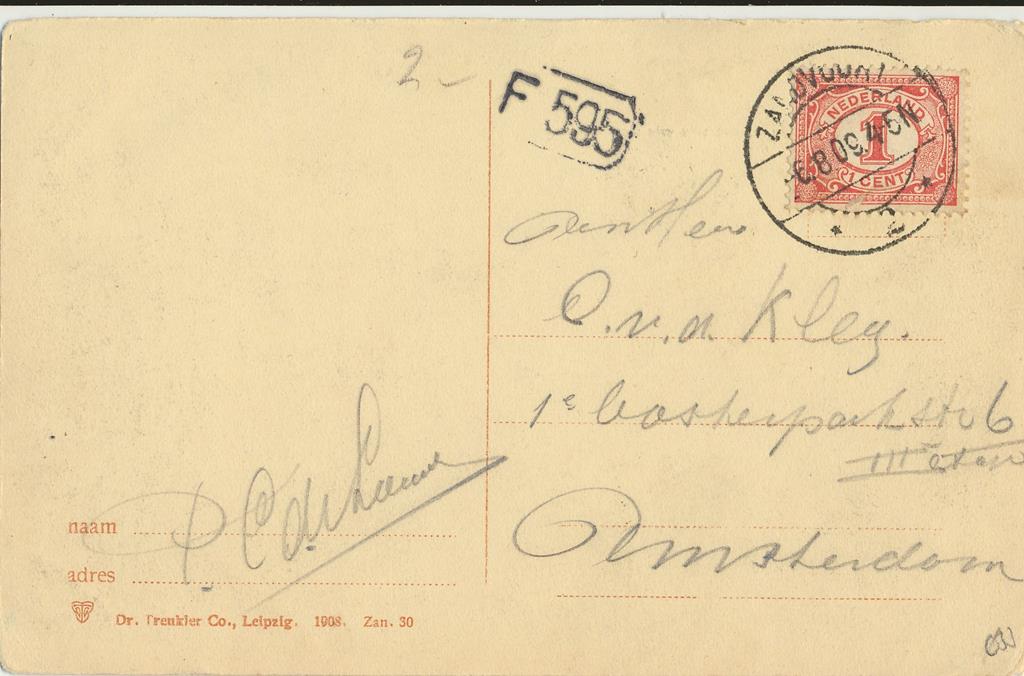 2-
F 595
ZANDVOORT
6.8.09.4-5N
2
NEDERLAND
1
CENT
Aan Heer
C. v. d. Kley.
1e Oosterparkstr 6
III
Amsterdam
naam
adres
Dr. Trenkler Co., Leipzig. 1908. Zan. 30